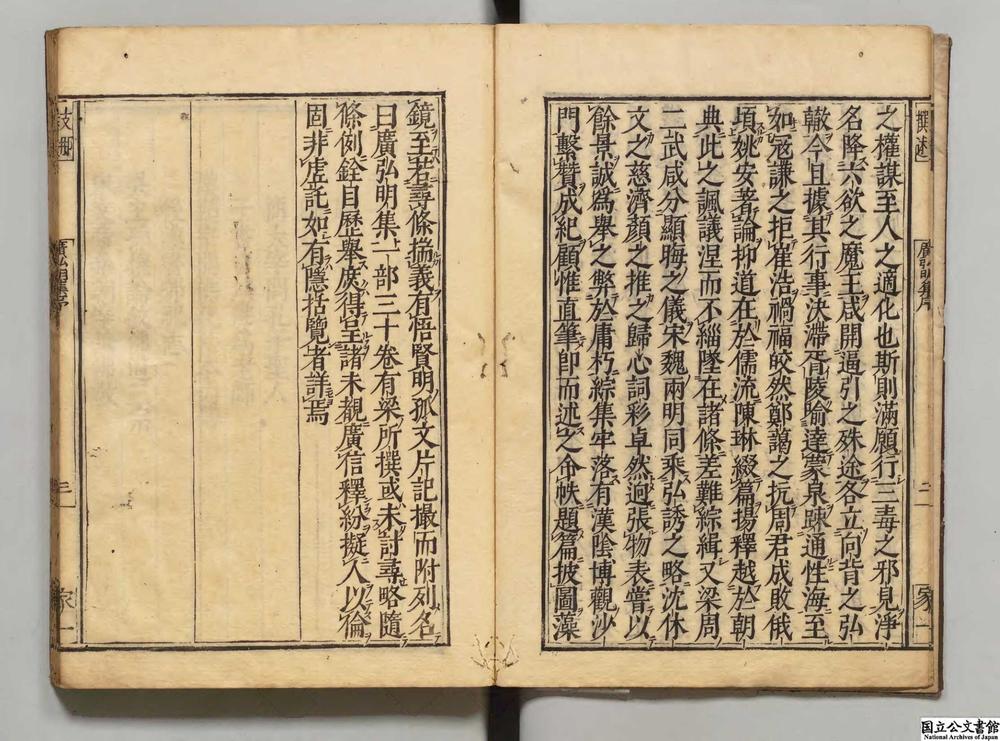 撰述
廣弘明集序
二
家一
之權謀至人之適化也斯則滿願行三毒之邪見淨
名降六欲之魔王咸開逼引之殊途各立向背之弘
轍今且據其行事決滯胥陵喻達蒙泉踈通性海至
如寇謙之拒崔浩禍福皎然鄭藹之抗周君成敗俄
頃姚安著論抑道在於儒流陳琳綴篇揚釋越於朝
典此之諷議涅而不緇墜在諸條差難綜緝又梁周
二武咸分顯晦之儀宋魏兩明同乘弘誘之略沈休
文之慈濟顏之推之歸心詞彩卓然迥張物表嘗以
餘景誠為舉之弊於庸朽綜集牢落有漢陰博觀沙
門繫贊成紀顧惟直筆即而述之命帙題篇披圖藻
鏡至若尋條揣義有悟賢明孤文片記撮而附列名
曰廣弘明集一部三十卷有梁所撰或未討尋略隨
條例銓目歷舉庶得呈諸未覿廣信釋紛擬人以倫
固非虛託如有隱括覽者詳焉
支那
廣弘明集序
三
家一
国立公文書館
National Archives of Japan